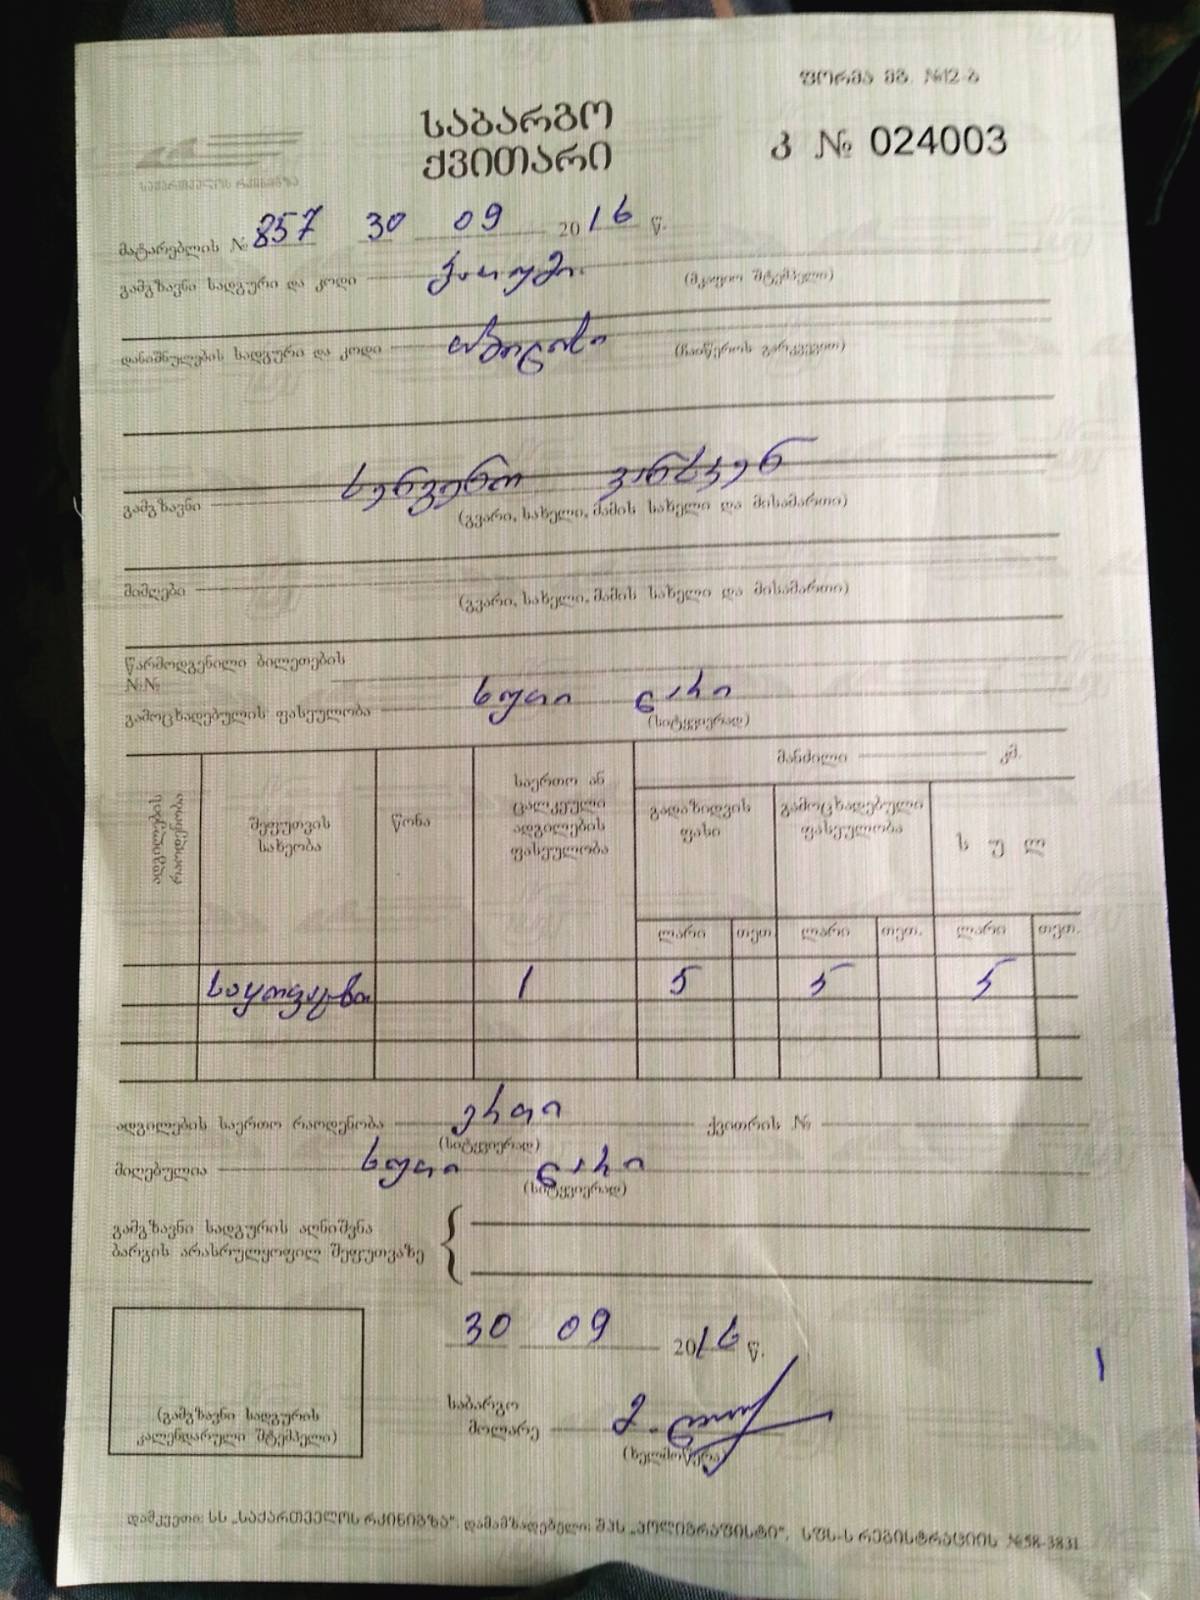 ფორმა მგ. №12-ბ
საბარგო
ქვითარი
კ № 024003
საქართველოს რკინიგზა
მატარებლის № 857 30 09 2016 წ.
გამგზავნი სადგური და კოდი (მკაფიო შტემპელი)
დანიშნულების სადგური და კოდი თბილისი (ჩაიწეროს გარკვევით)
გამგზავნი
(გვარი, სახელი, მამის სახელი და მისამართი)
მიმღები
(გვარი, სახელი, მამის სახელი და მისამართი)
წარმოდგენილი ბილეთების
№№
გამოცხადებულის ფასეულობა ხუთი ლარი
(სიტყვიერად)
მანძილი კმ.
ადგილების რაოდენობა
შეფუთვის სახეობა
წონა
საერთო ან ცალკეული ადგილების ფასეულობა
გადაზიდვის ფასი
გამოცხადებული ფასეულობა
ს უ ლ
ლარი თეთ. ლარი თეთ. ლარი თეთ.
1 5 5 5
ადგილების საერთო რაოდენობა ერთი ქვითრის №
(სიტყვიერად)
მიღებულია ხუთი ლარი
(სიტყვიერად)
გამგზავნი სადგურის აღნიშვნა
ბარგის არასრულყოფილ შეფუთვაზე
30 09 2016 წ.
საბარგო
მოლარე
(ხელმოწერა)
(გამგზავნი სადგურის
კალენდარული შტემპელი)
დამკვეთი: სს „საქართველოს რკინიგზა“. დამამზადებელი: შპს „პოლიგრაფისტი“, სფს-ს რეგისტრაციის №58-3831